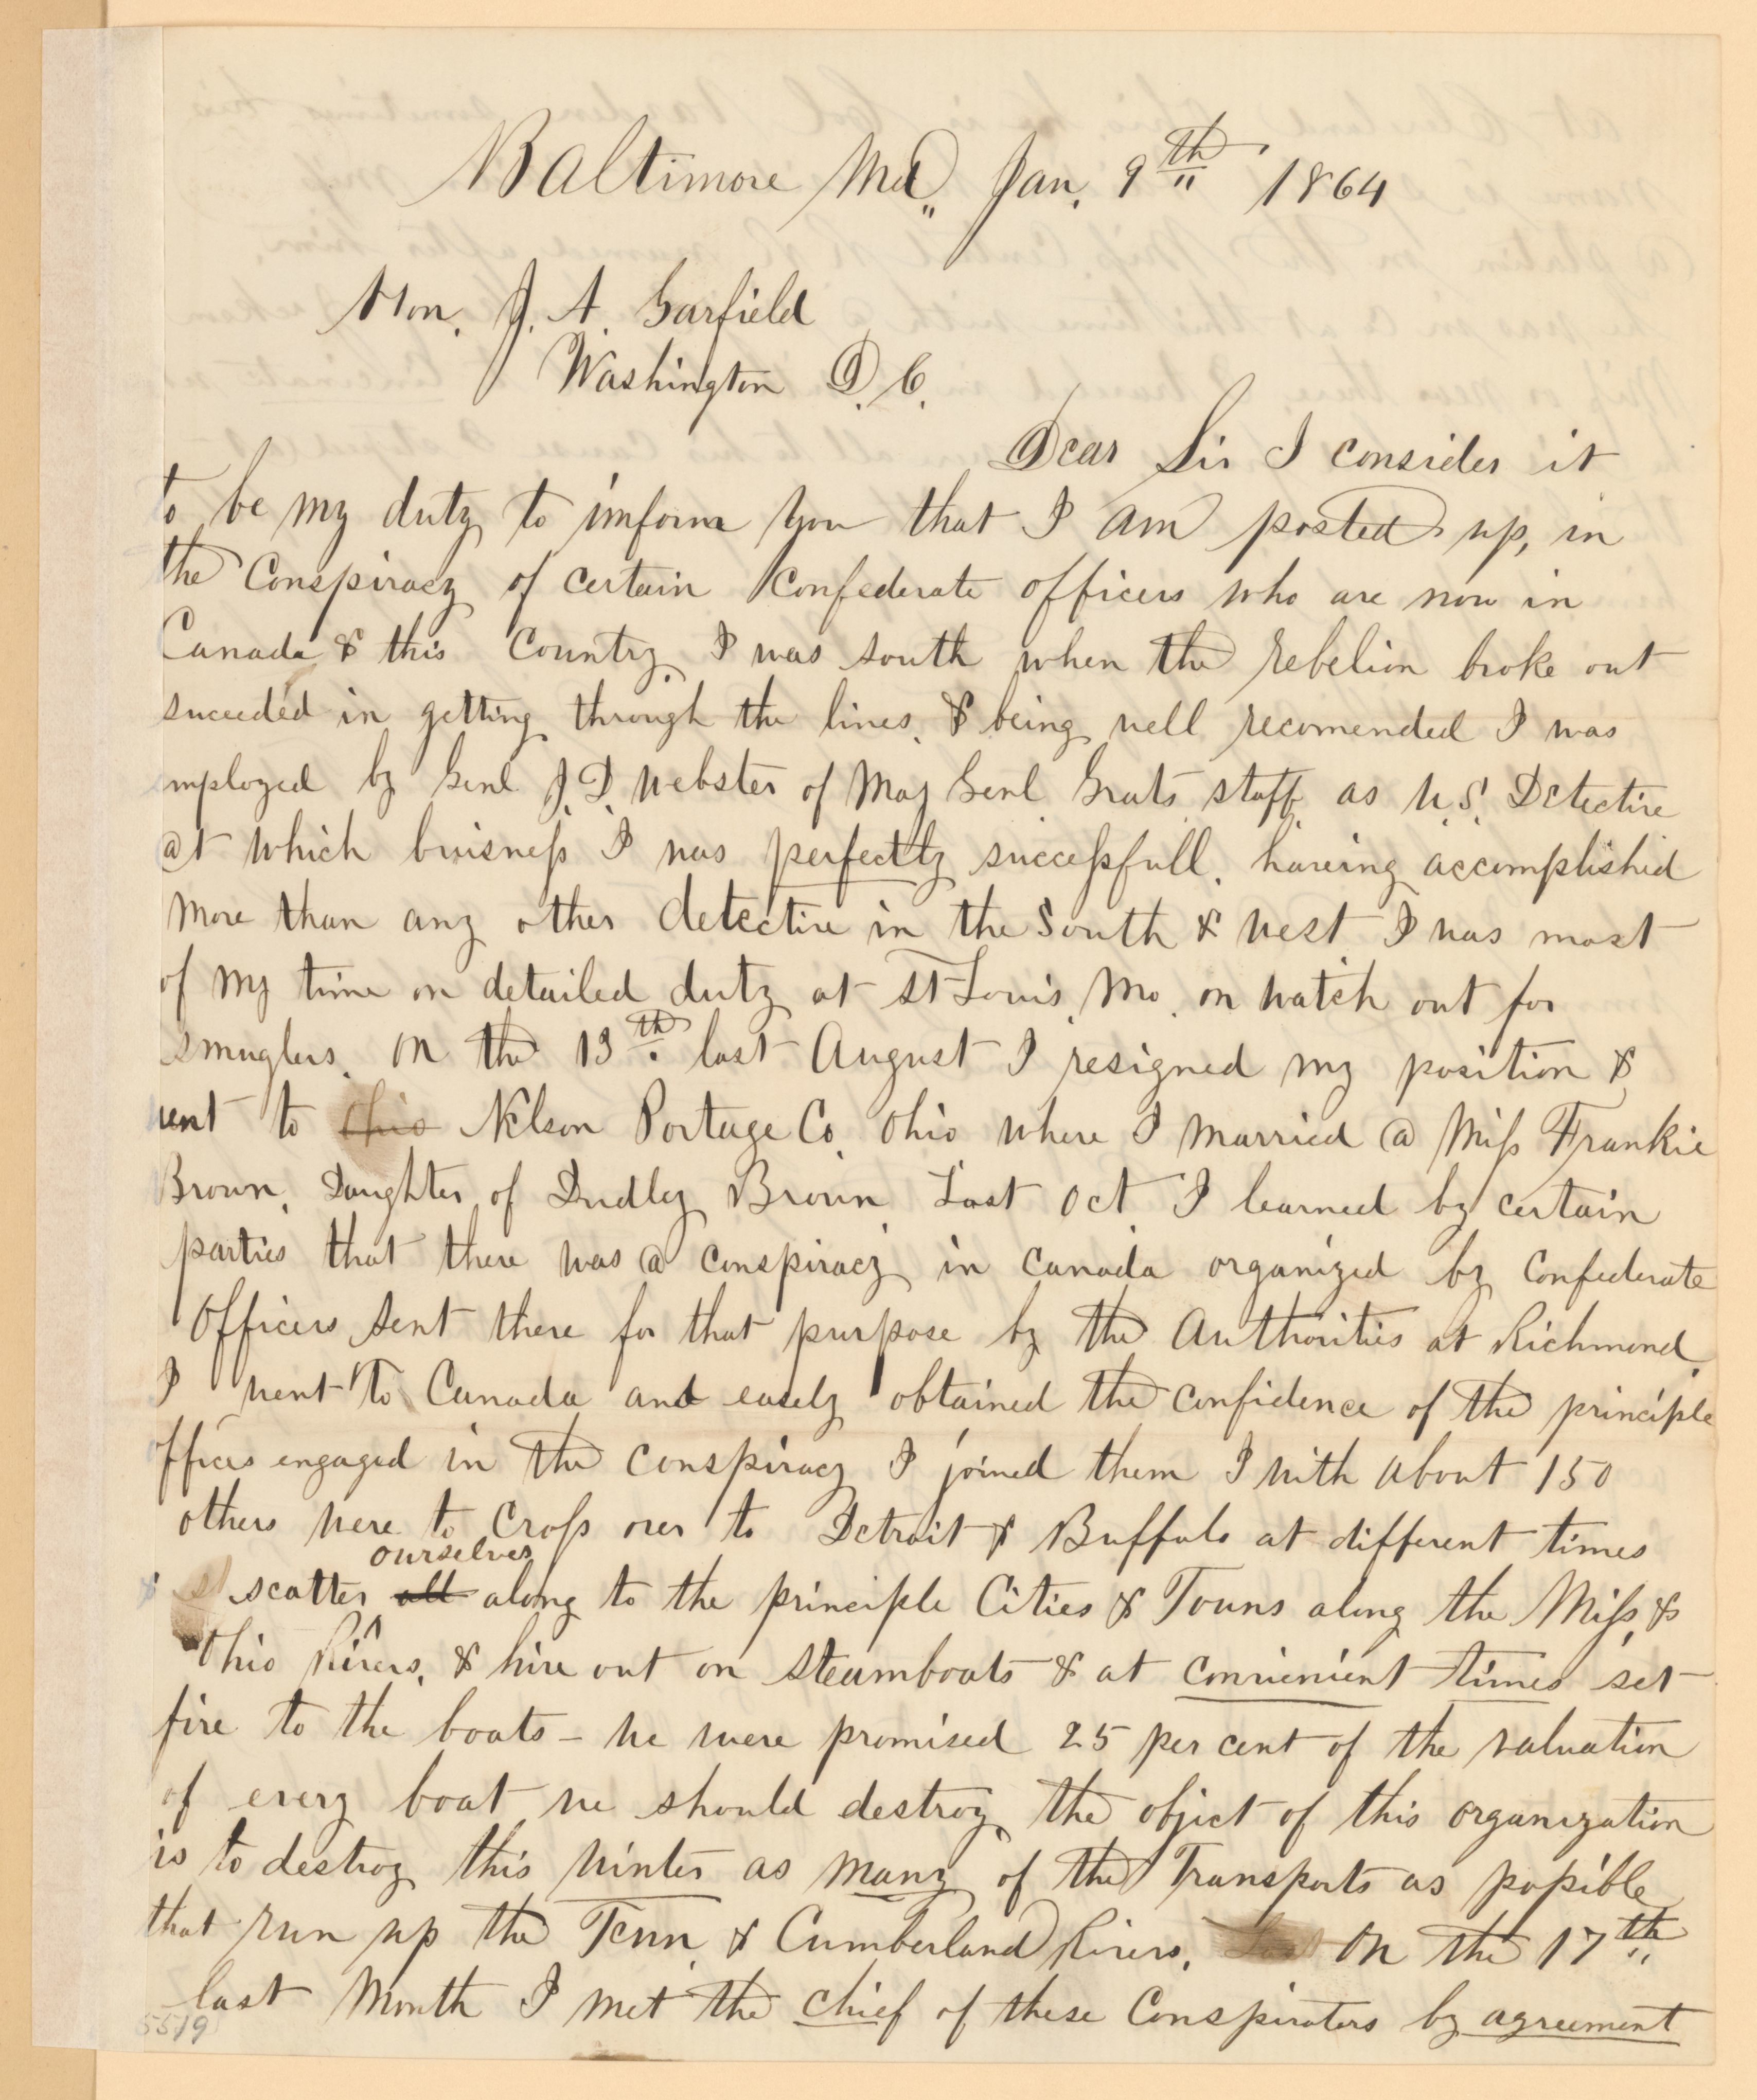 Baltimore Md,, Jan, 9th 1864
Hon. J. A. Garfield
Washington D. C.
Dear Sir I consider it
to be my duty to imform you that I am posted up, in
the Conspiracy of certain Confederate officers who are now in
Canada & this Country. I was south when the rebelion broke out
succeeded in getting through the lines. & being well recomended I was
mployed by Genl J. D. Webster of Maj Genl Grats staff as U.S. Detective
at which buisness I was perfectly successfull. haveing accomplished
more than any other detective in the South & west I was most
of my time on detailed duty at St Louis, Mo. on watch out for
smuglers. On the 13th last August I resigned my position &
went to Ohio Nelson Portage Co. Ohio where I married a Miss Frankie
Brown. Daughter of Dudley Brown. Last Oct. I learned by certain
parties that there was a conspiracy in Canada organized by Confederate
Officers sent there for that purpose by the Authorities at Richmond.
I went to Canada and easely obtained the confidence of the principle
offices engaged in the conspiracy I joined them I with about 150
others were to Cross over to Detroit & Buffalo at different times
ourselves
& scatter all along to the principle Cities & Towns along the Miss, &
Ohio Rivers, & hire out on steamboats & at convienient times set
fire to the boats – we were promised 25 per cent of the valuation
of every boat we should destroy. the object of this organization
is to destroy this winter as many of the Transports as possible
that run up the Tenn. & Cumberland Rivers. On the 17th
last Month I met the chief of these Conspirators by agreement
5519